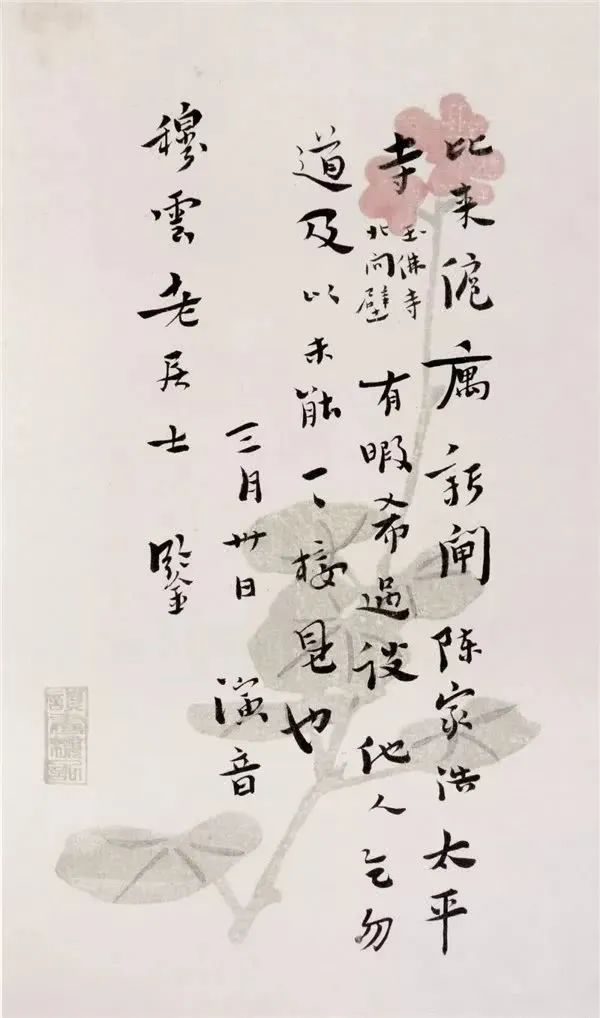 比来滬寓新闸陈家浩太平
寺
玉佛寺
北间壁
有暇希過谈他人乞勿
道及以未能一一接見也
三月卅日 演音
穆雲老居士 鑒